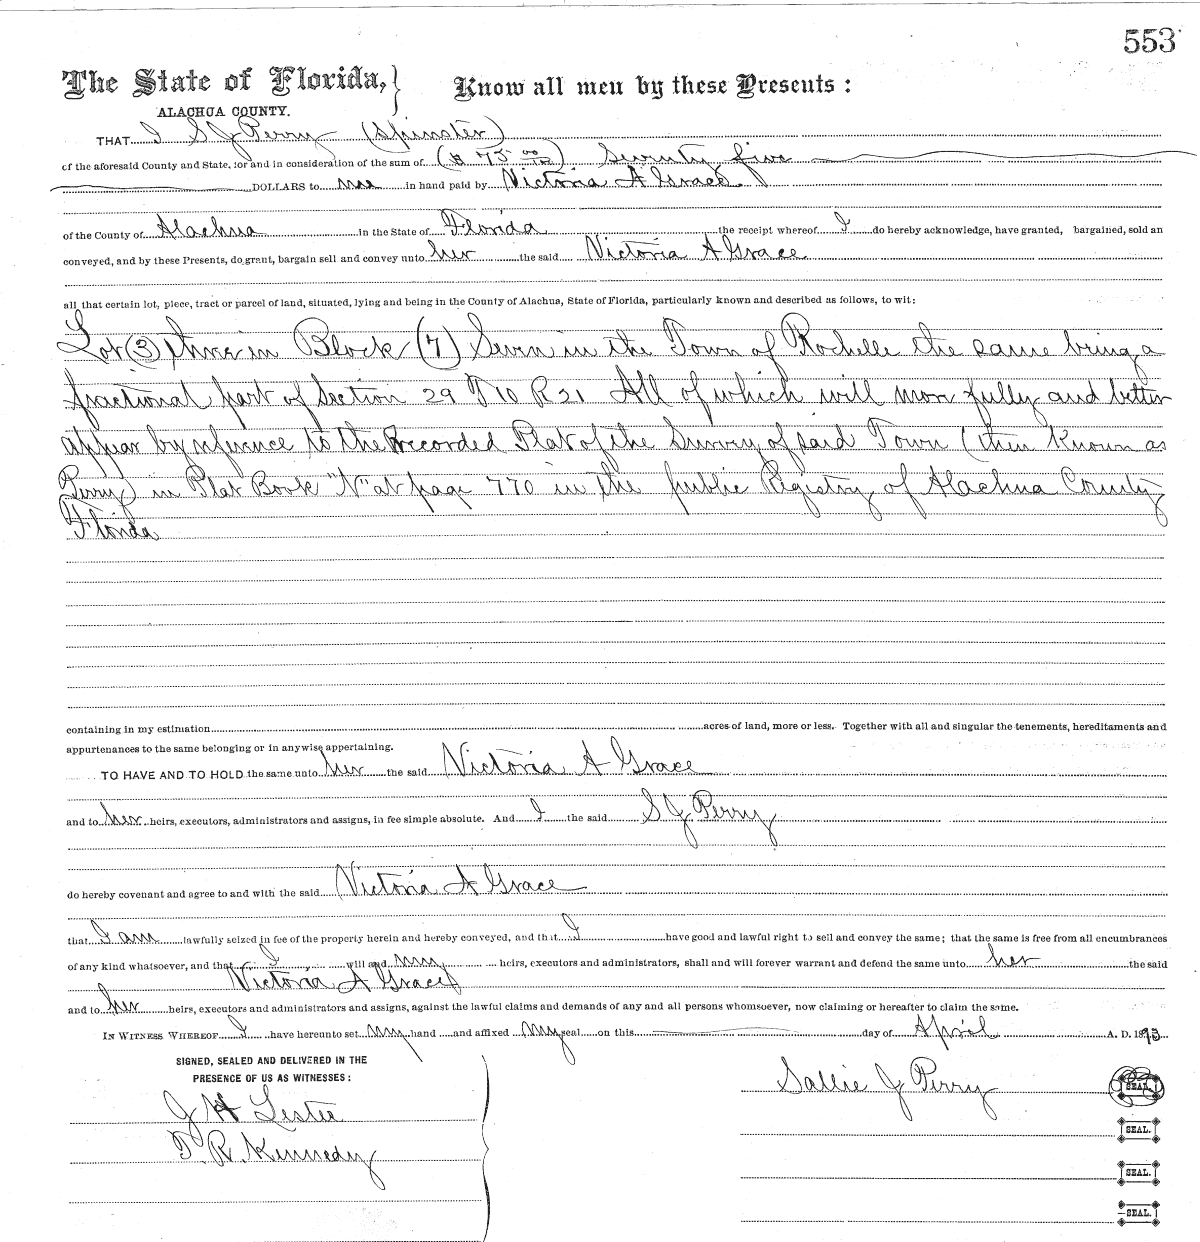 553
The State of Florida, Know all men by these Presents :
ALACHUA COUNTY.
THAT I S J Perry (Spinster)
of the aforesaid County and State, for and in consideration of the sum of ($ 75 00/100) Seventy five
DOLLARS to me in hand paid by Victoria A Grace
of the County of Alachua in the State of Florida the receipt whereof I do hereby acknowledge, have granted, bargained, sold an
conveyed, and by these Presents, do grant, bargain sell and convey unto her the said Victoria A Grace
all that certain lot, piece, tract or parcel of land, situated, lying and being in the County of Alachua, State of Florida, particularly known and described as follows, to wit:
Lot (3) three in Block (7) Seven in the Town of Rochelle the same being a
fractional part of Section 29 T 10 R 21 All of which will more fully and better
appear by reference to the Recorded Plat of the Survey of said Town (then Known as
Perry) in Plat Book "N" at page 770 in the public Registry of Alachua County
Florida
containing in my estimation acres of land, more or less. Together with all and singular the tenements, hereditaments and
appurtenances to the same belonging or in anywise appertaining.
TO HAVE AND TO HOLD the same unto her the said Victoria A Grace
and to her heirs, executors, administrators and assigns, in fee simple absolute. And I the said S J Perry
do hereby covenant and agree to and with the said Victoria A Grace
that I am lawfully seized in fee of the property herein and hereby conveyed, and that I have good and lawful right to sell and convey the same; that the same is free from all encumbrances
of any kind whatsoever, and that I will and my heirs, executors and administrators, shall and will forever warrant and defend the same unto her the said
Victoria A Grace
and to her heirs, executors and administrators and assigns, against the lawful claims and demands of any and all persons whomsoever, now claiming or hereafter to claim the same.
IN WITNESS WHEREOF I have hereunto set my hand and affixed my seal on this day of April A. D. 1893
SIGNED, SEALED AND DELIVERED IN THE
PRESENCE OF US AS WITNESSES :
Sallie J Perry SEAL.
J H Lester
SEAL.
T. R. Kennedy
SEAL.
SEAL.